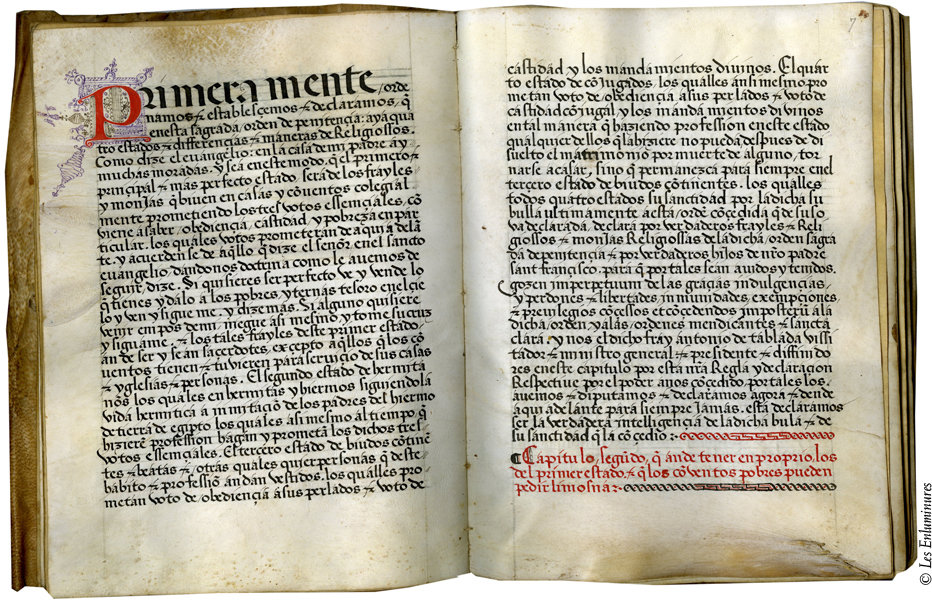 Primeramente, orde
namos & establesçemos & declaramos, q̃
en esta sagrada, orden de penitençia, aya qua
tro estados & differençias & maneras de Religiossos.
Como dize el euangelio: en la casa de mi padre ay
muchas moradas. Y sea en este modo. q̃ el primero &
prinçipal & mas perfecto estado, sera de los frayles
y monjas q̃ biuen en casas y cõuentos colegial
mente prometiendo los tres votos essençiales, cõ
viene a saber, obediençia, castidad y pobreza en par
ticular. los quales votos prometeran de aqui adelã
te. y acuerdense de aq̃llo q̃ dize el señor en el sancto
euangelio, dandonos doctrina como le auemos de
seguir, dize. Si quisieres ser perfecto ve y vende lo
q̃ tienes y dalo a los pobres, y ternas tesoro en el çie
lo y ven y sigue me. y dize mas. Si alguno quisiere
venir em pos de mi, niegue asi mesmo y tome su cruz
y siguame. & los tales frayles deste primer estado,
an de ser y sean saçerdotes, excepto aq̃llos q̃ los cõ
uentos tienen & tuvieren para seruiçio de sus casas
& yglesias & personas. El segundo estado de hermita
ños. los quales en hermitas y hiermos siguiendo la
vida hermitica a immitaçiõ de los padres del hiermo
de tierra de egipto. los quales asi mesmo al tiempo q̃
hizierẽ professiõn hagan y prometã los dichos tres
votos essençiales. El terçero estado de biudos cõtinẽ
tes & beatas &, otras quales quier personas q̃ deste
habito & professiõ andan vestidos. los qualles pro
metan voto de, obediençia a sus perlados & voto de
7
castidad y los mandamientos divinos. El quar
to estado de cõjugados. los qualles ansi mesmo pro
metan voto de, obediençia, a sus perlados & voto de
castidad cõjugal, y los mandamientos divinos
en tal manera q̃ haziendo profession en este estado
qualquier dellos q̃ la hiziere no pueda despues de di
suelto el matrimonio por muerte de alguno, tor
narse a casar, sino q̃ permanezca para siempre en el
terçero estado de biudos cõtinentes. los qualles
todos quatro estados su sanctidad por la dicha su
bulla ultimamente a esta, ordẽ cõçedida q̃ de suso
va declarada, declara por verdaderos frayles & Reli
giossos & monjas Religiossas de la dicha, orden sagra
da de penitençia & por verdaderos hijos de nr̃o padre
sant françisco. para q̃ por tales sean auidos y tenidos.
gozen imperpetuum de las graçias indulgençias,
y perdones & libertades, inmunidades, exempçiones,
& previlegios cõçessos et cõçedendos imposterũ a la
dicha, orden y a las, ordenes mendicantes & sancta
clara. y nos el dicho fray antonio de tablada vissi
tador & ministro general & presidente & diffinido
res en este capitulo por esta nr̃a Regla y declaraçion
Respectiue por el poder anos cõçedido, por tales los.
auemos & diputamos & declaramos agora & dende
aqui adelante para siempre jamas. esta declaramos
ser la verdadera intelligençia de la dicha bula & de
su sanctidad q̃ la cõçedio :-
Capitulo, segũdo, q̃ an de tener en proprio, los
del primer estado, & q̃ los cõventos pobres pueden
pedir limosna :-
© Les Enluminures